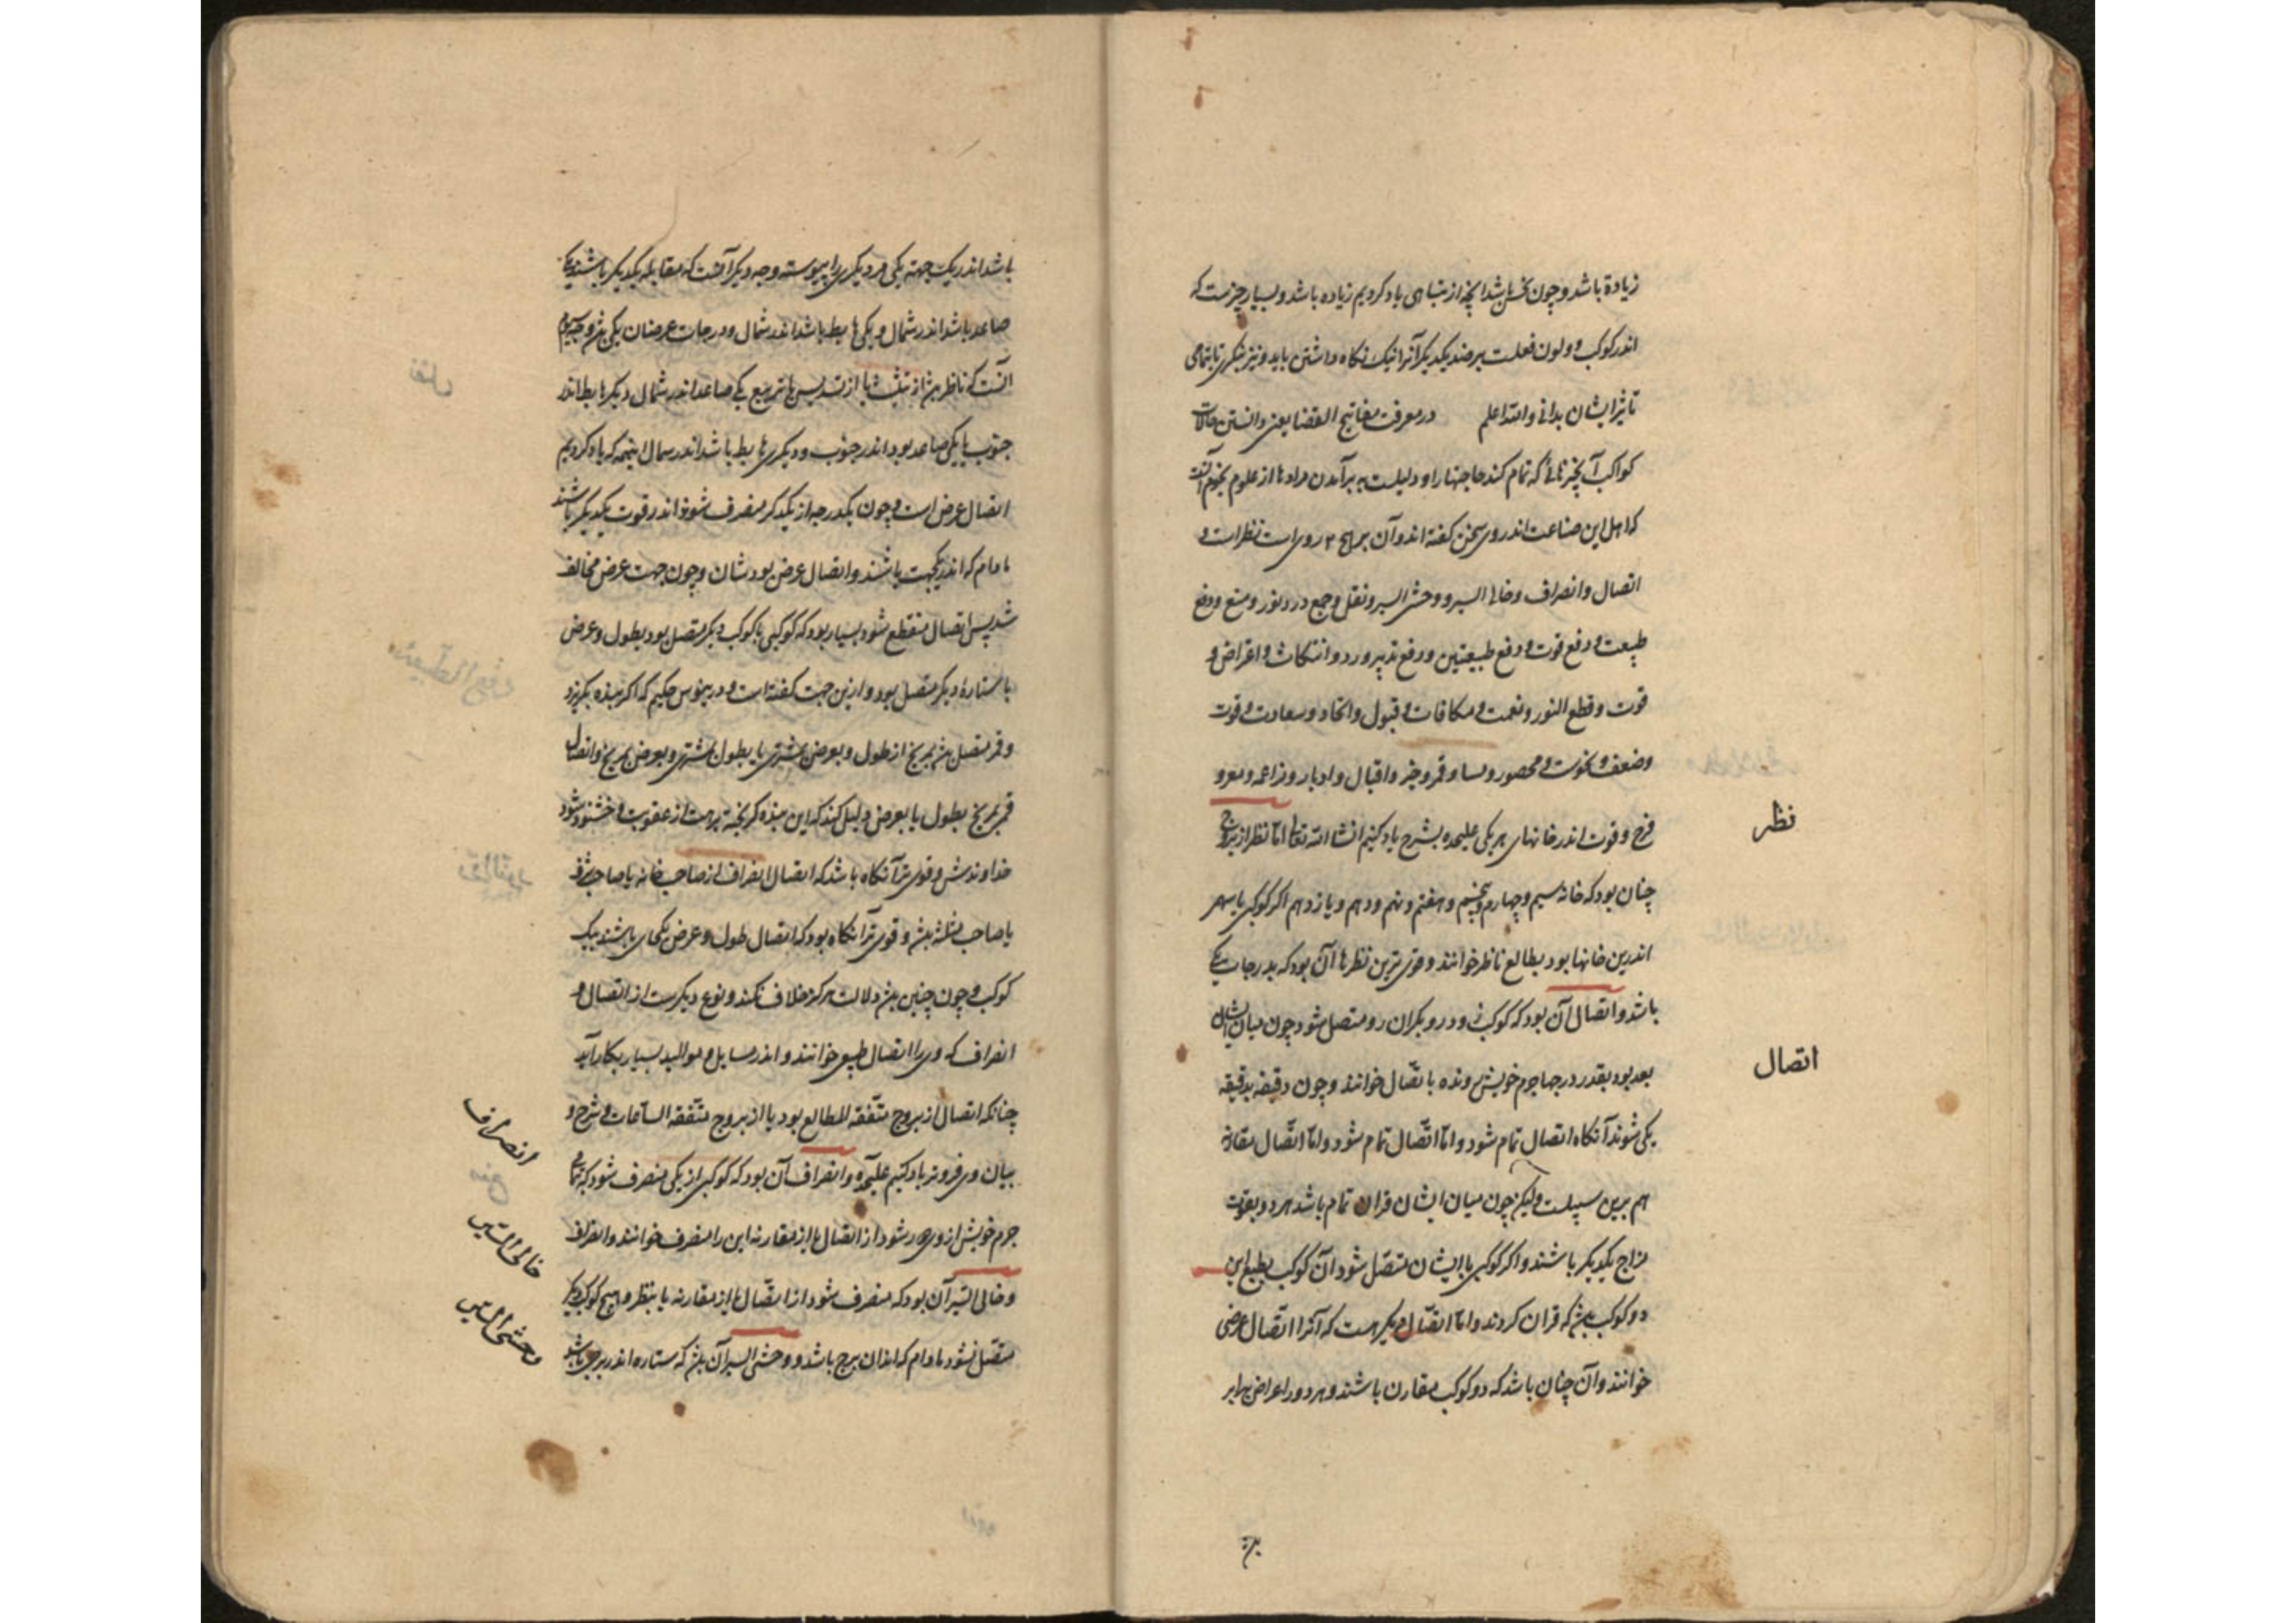 زیادة باشد و چون نحس باشد آنچه از تباهی یاد کردیم زیاده باشد و بسیار چیزست که
اندر کوکب و لون فعلست بر ضد یکدیگر آنرا نیک نگاه داشتن باید و نیز بنگری تا بتمامی
تاثیر ایشان بدانی والله اعلم در معرفت مفاتیح القضا یعنی دانستن حالات
کواکب که تمام کند حاجتها را و دلیلست بر برآمدن مرادها از علوم نجوم آنست
که اهل این صناعت اندر وی سخن گفته اند و آن بر روی است نظر است و
اتصال و انصراف و خالی السیر و وحشی السیر و نقل و جمع و رد نور و منع و دفع
طبیعت و دفع قوت و دفع طبیعتین و دفع تدبیر و رد و انتکاث و اعراض و
قوت و قطع النور و نعمت و مکافات و قبول و اتحاد و سعادت و قوت
و ضعف و نحوست و محصور و اقبال و ادبار و
فرح و قوت اندر خانهای هر یکی علیحده بشرح یاد کنیم انشا الله تعالی اما نظر از بروج
چنان بود که خانه سیم و چهارم و پنجم و هفتم و نهم و دهم و یازدهم اگر کوکبی یا سهمی
اندرین خانها بود بطالع ناظر خوانند و قوی ترین نظرها آن بود که بدرجات یکی
باشد و اتصال آن بود که کوکب زودرو بگران رو متصل شود چون میان ایشان
بعد بود بقدر درجها جرم خویش رونده باتصال خوانند و چون دقیقه بدقیقه
یکی شوند آنگاه اتصال تمام شود و اما اتصال تمام شود و اما اتصال مقارنه
هم برین سبیلست ولیکن چون میان ایشان قران تمام باشد هر دو بقوت
مزاج یکدیگر باشند و اگر کوکبی با ایشان متصل شود آن کوکب بطبع این
دو کوکب بود که قران کردند و اما اتصال دیگر هست که آنرا اتصال عرضی
خوانند و آن چنان باشد که دو کوکب مقارن باشند و هر دو را عرض برابر
نظر
اتصال
باشد اندر یک جهة یکی مر دیگری را پیوسته وجه دیگر آنست که مقابله یکدیگر باشند یکی
صاعد باشد اندر شمال و یکی هابط باشد اندر شمال و درجات عرضشان یکی بود و وجه سیم
آنست که ناظر بود از تثلیث یا از تسدیس یا تربیع یکی صاعد اندر شمال دیگر هابط اندر
جنوب یا یکی صاعد بود اندر جنوب و دیگری هابط باشد اندر شمال اینهمه که یاد کردیم
اتصال عرض است و چون یکدرجه از یکدیگر منصرف شوند اندر قوت یکدیگر باشند
مادام که اندر یکجهت باشند و اتصال عرض بودشان و چون جهت عرض مخالف
شد پس اتصال منقطع شود بسیار بود که کوکبی با کوکب دیگر متصل بود بطول و عرض
با ستاره دیگر متصل بود و ازین جهت گفته است حکیم که اگر بنده بگریزد
و قمر متصل بود بمریخ از طول و بعرض بمشتری یا بطول بمشتری و بعرض بمریخ و اتصال
قمر بمریخ بطول یا بعرض دلیل کند که این بنده گریخته برهد از عقوبت و خشنود شود
خداوندش و قوی تر آنگاه باشد که اتصال انصراف از صاحب خانه یا صاحب شرف
یا صاحب مثلثه بود و قوی تر آنگاه بود که اتصال طول و عرض بکجای باشند بیک
کوکب و چون چنین بود دلالت هرگز خلاف نکند و نوع دیگرست از اتصال و
انصراف که ورا اتصال طبیعی خوانند و اندر مسایل و موالید بسیار بکار آید
چنانکه اتصال از بروج متفقه المطالع بود یا از بروج متفقه الساعات و شرح و
بیان وی فروتر یاد کنیم علیحده و انصراف آن بود که کوکبی از یکی منصرف شود که بتمامی
جرم خویش از وی دور شود از اتصال یا از مقارنه این را منصرف خوانند و انصراف
و خالی السیر آن بود که منصرف شود از اتصال یا از مقارنه یا بنظر و هیچ کوکب دیگر
متصل نشود مادام که اندر آن برج باشد و وحشی السیر آن بود که ستاره اندر برجی باشد
انصراف
خالی السیر
وحشی السیر